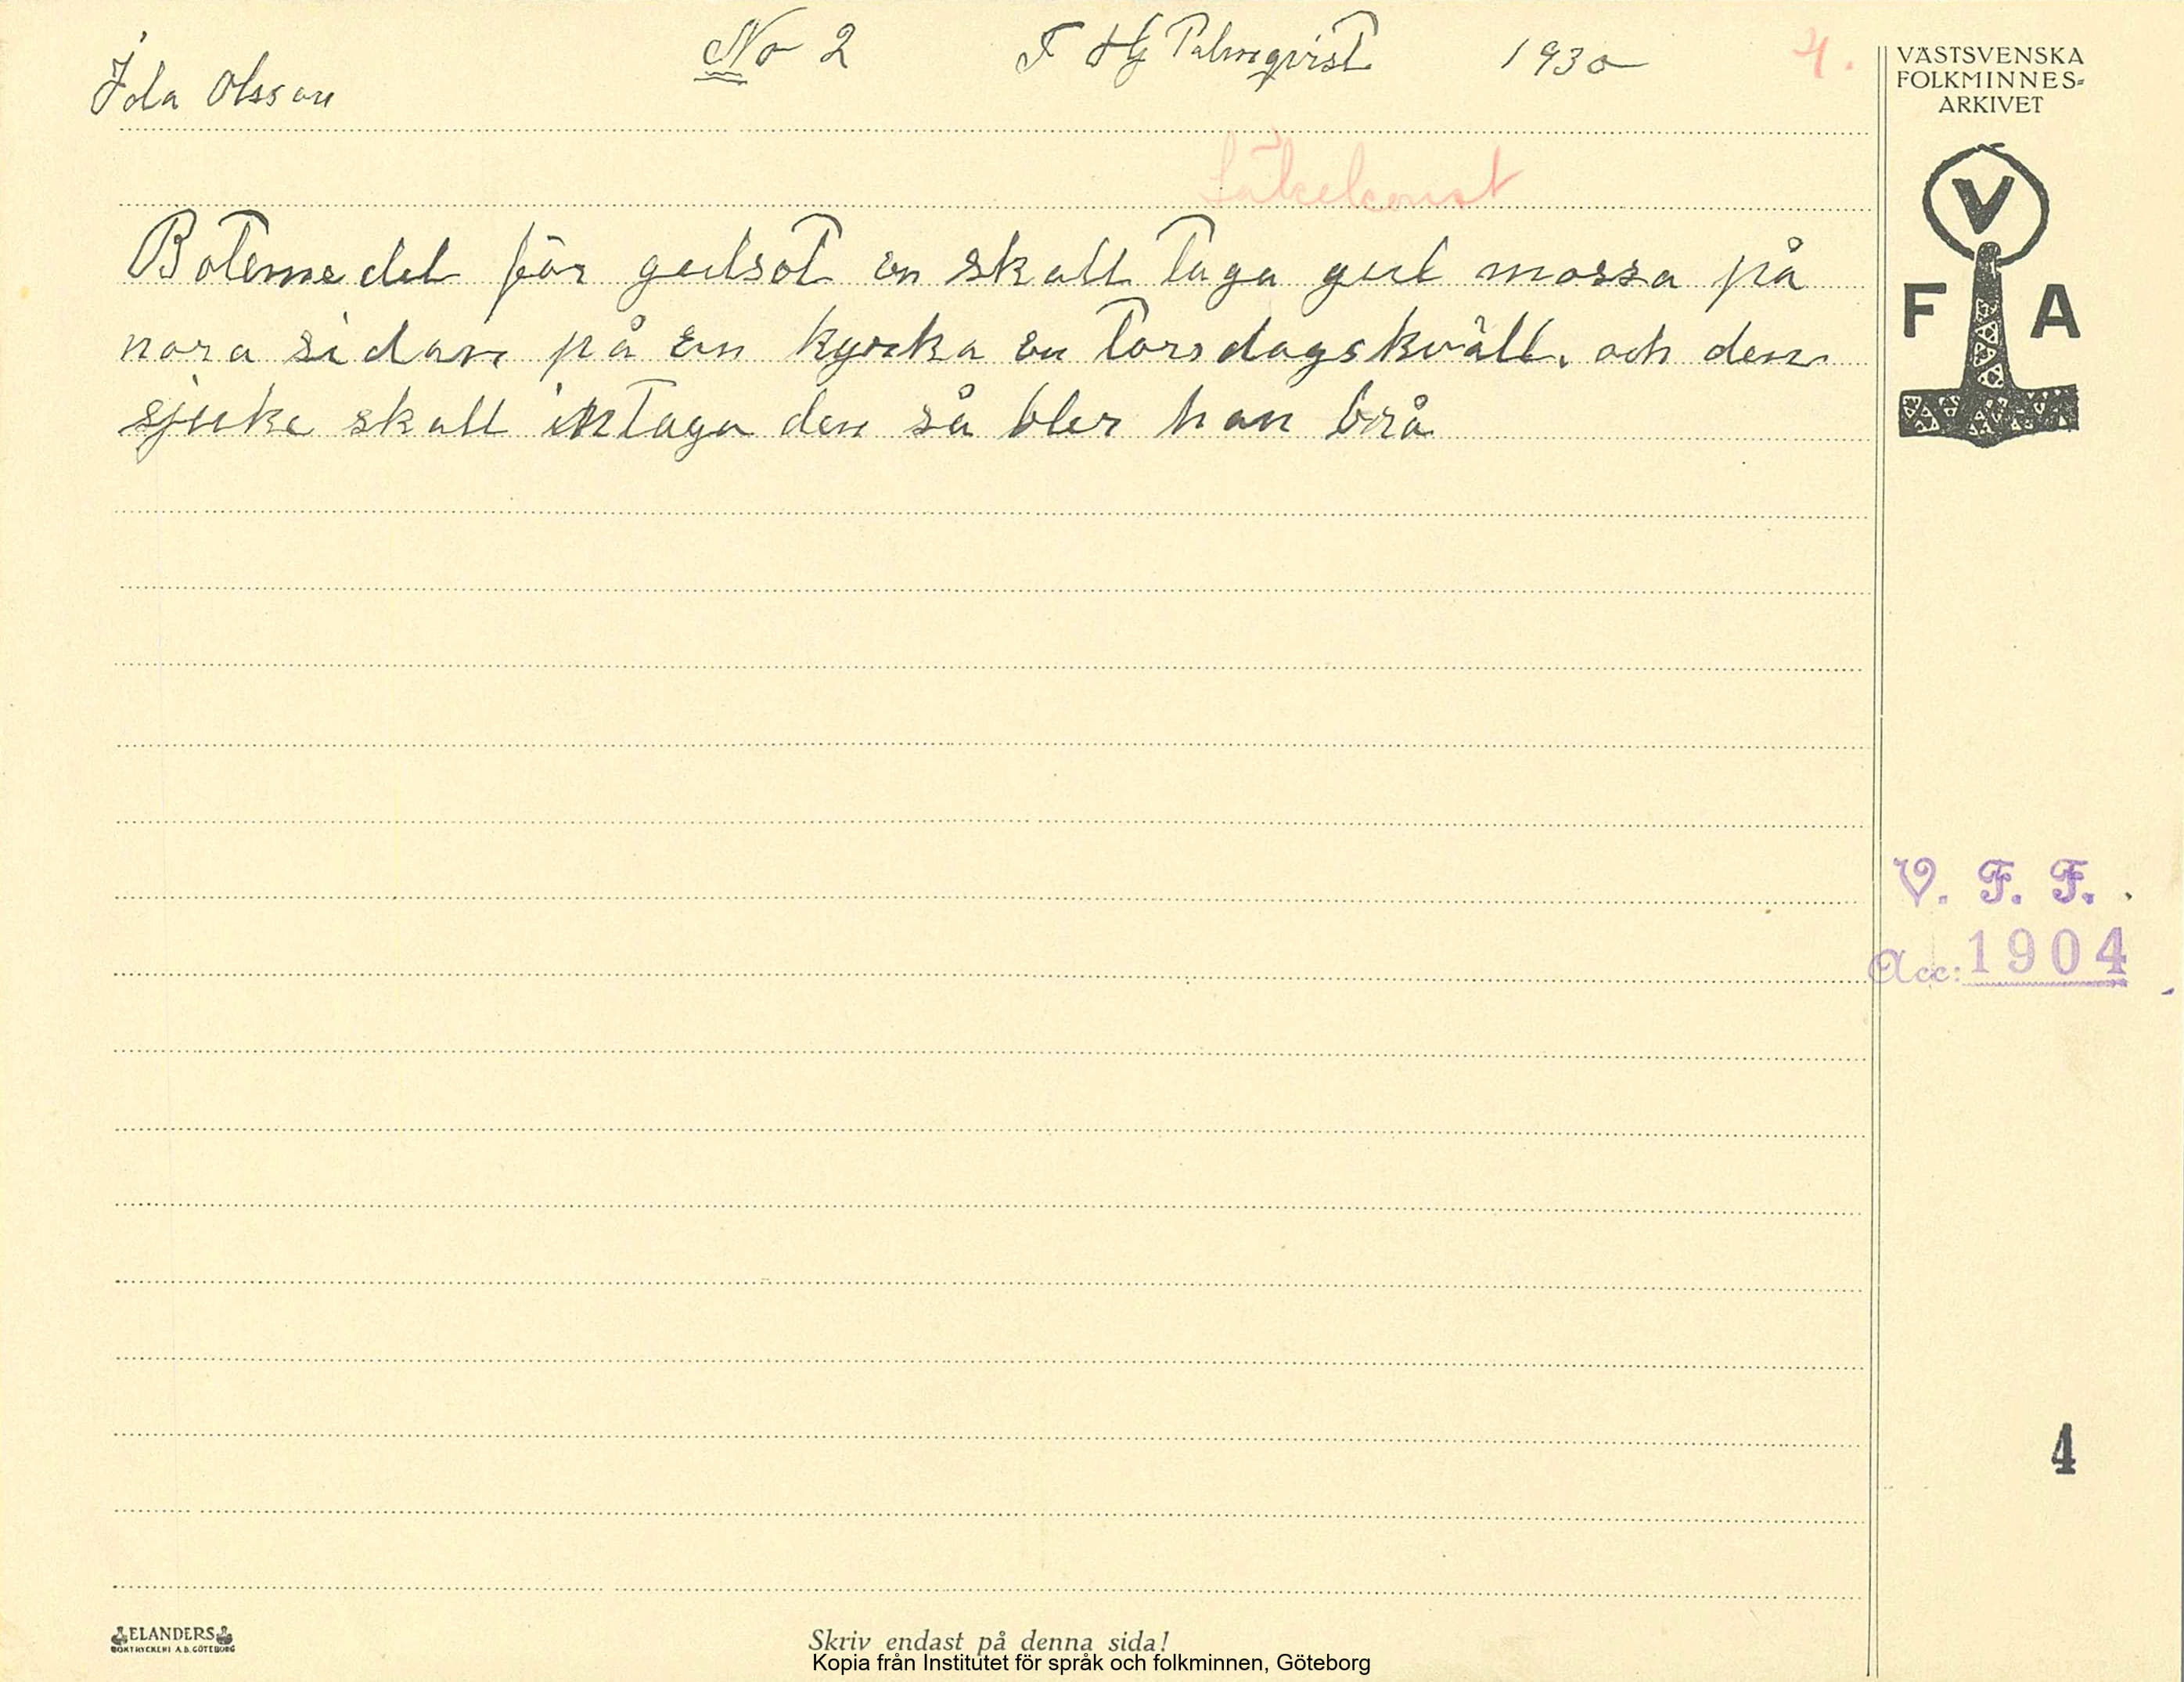 Ida Olsson No 2 F Hj Palmqvist 1930 4.
Läkekonst
Botemedel för gulsot en skall taga gul mossa på
nora sidan på en kyrka en torsdagskväll. och den
sjuke skall intaga den så bler han brå
VÄSTSVENSKA
FOLKMINNES-
ARKIVET
V
F A
V. F. F.
Acc: 1904
4
ELANDERS
BOKTRYCKERI A.B. GÖTEBORG
Skriv endast på denna sida!
Kopia från Institutet för språk och folkminnen, Göteborg